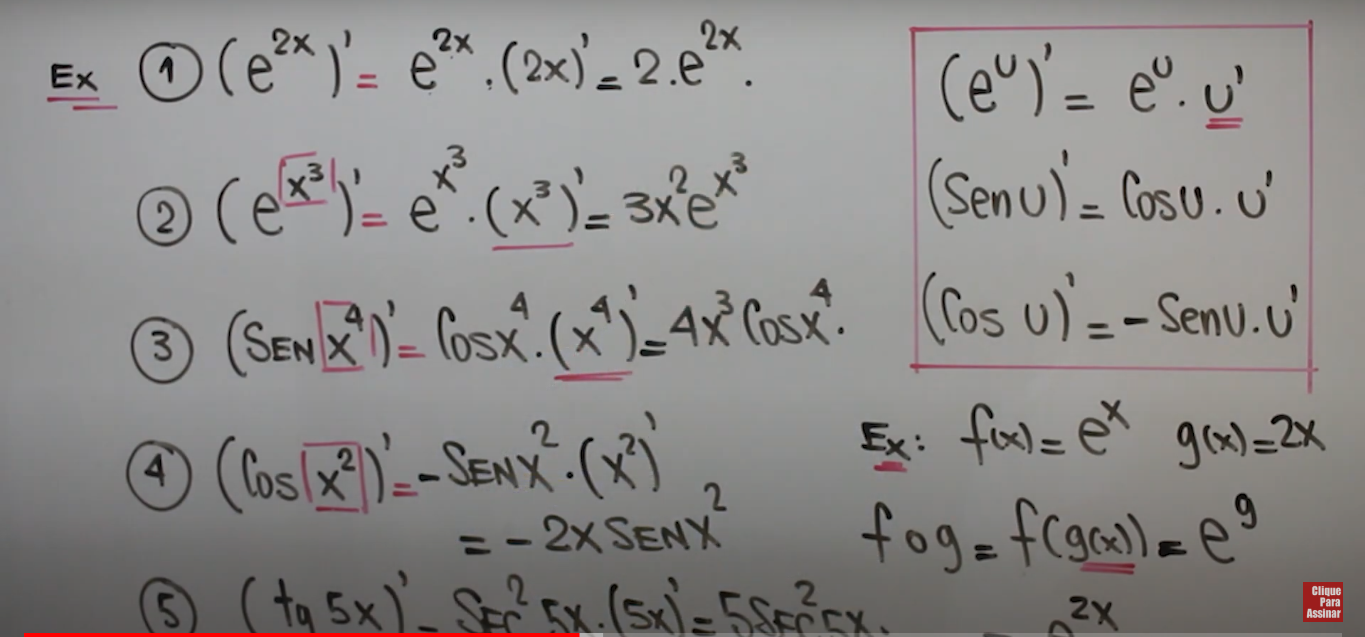 Ex ① (e²ˣ)' = e²ˣ . (2x)' = 2.e²ˣ.
② (e^x³)' = e^x³ . (x³)' = 3x²e^x³
③ (SEN x⁴)' = Cosx⁴.(x⁴)' = 4x³Cosx⁴.
④ (Cos x²)' = -SENX².(x²)'
= -2x SENX²
⑤ (tg 5x)' = SEC²5x.(5x)' = 5SEC²5x.
(eᵁ)' = eᵁ.U'
(Sen U)' = CosU.U'
(Cos U)' = -SenU.U'
Ex: f(x) = eˣ g(x)=2x
fog = f(g(x)) = e^g
= e²ˣ
Clique
Para
Assinar